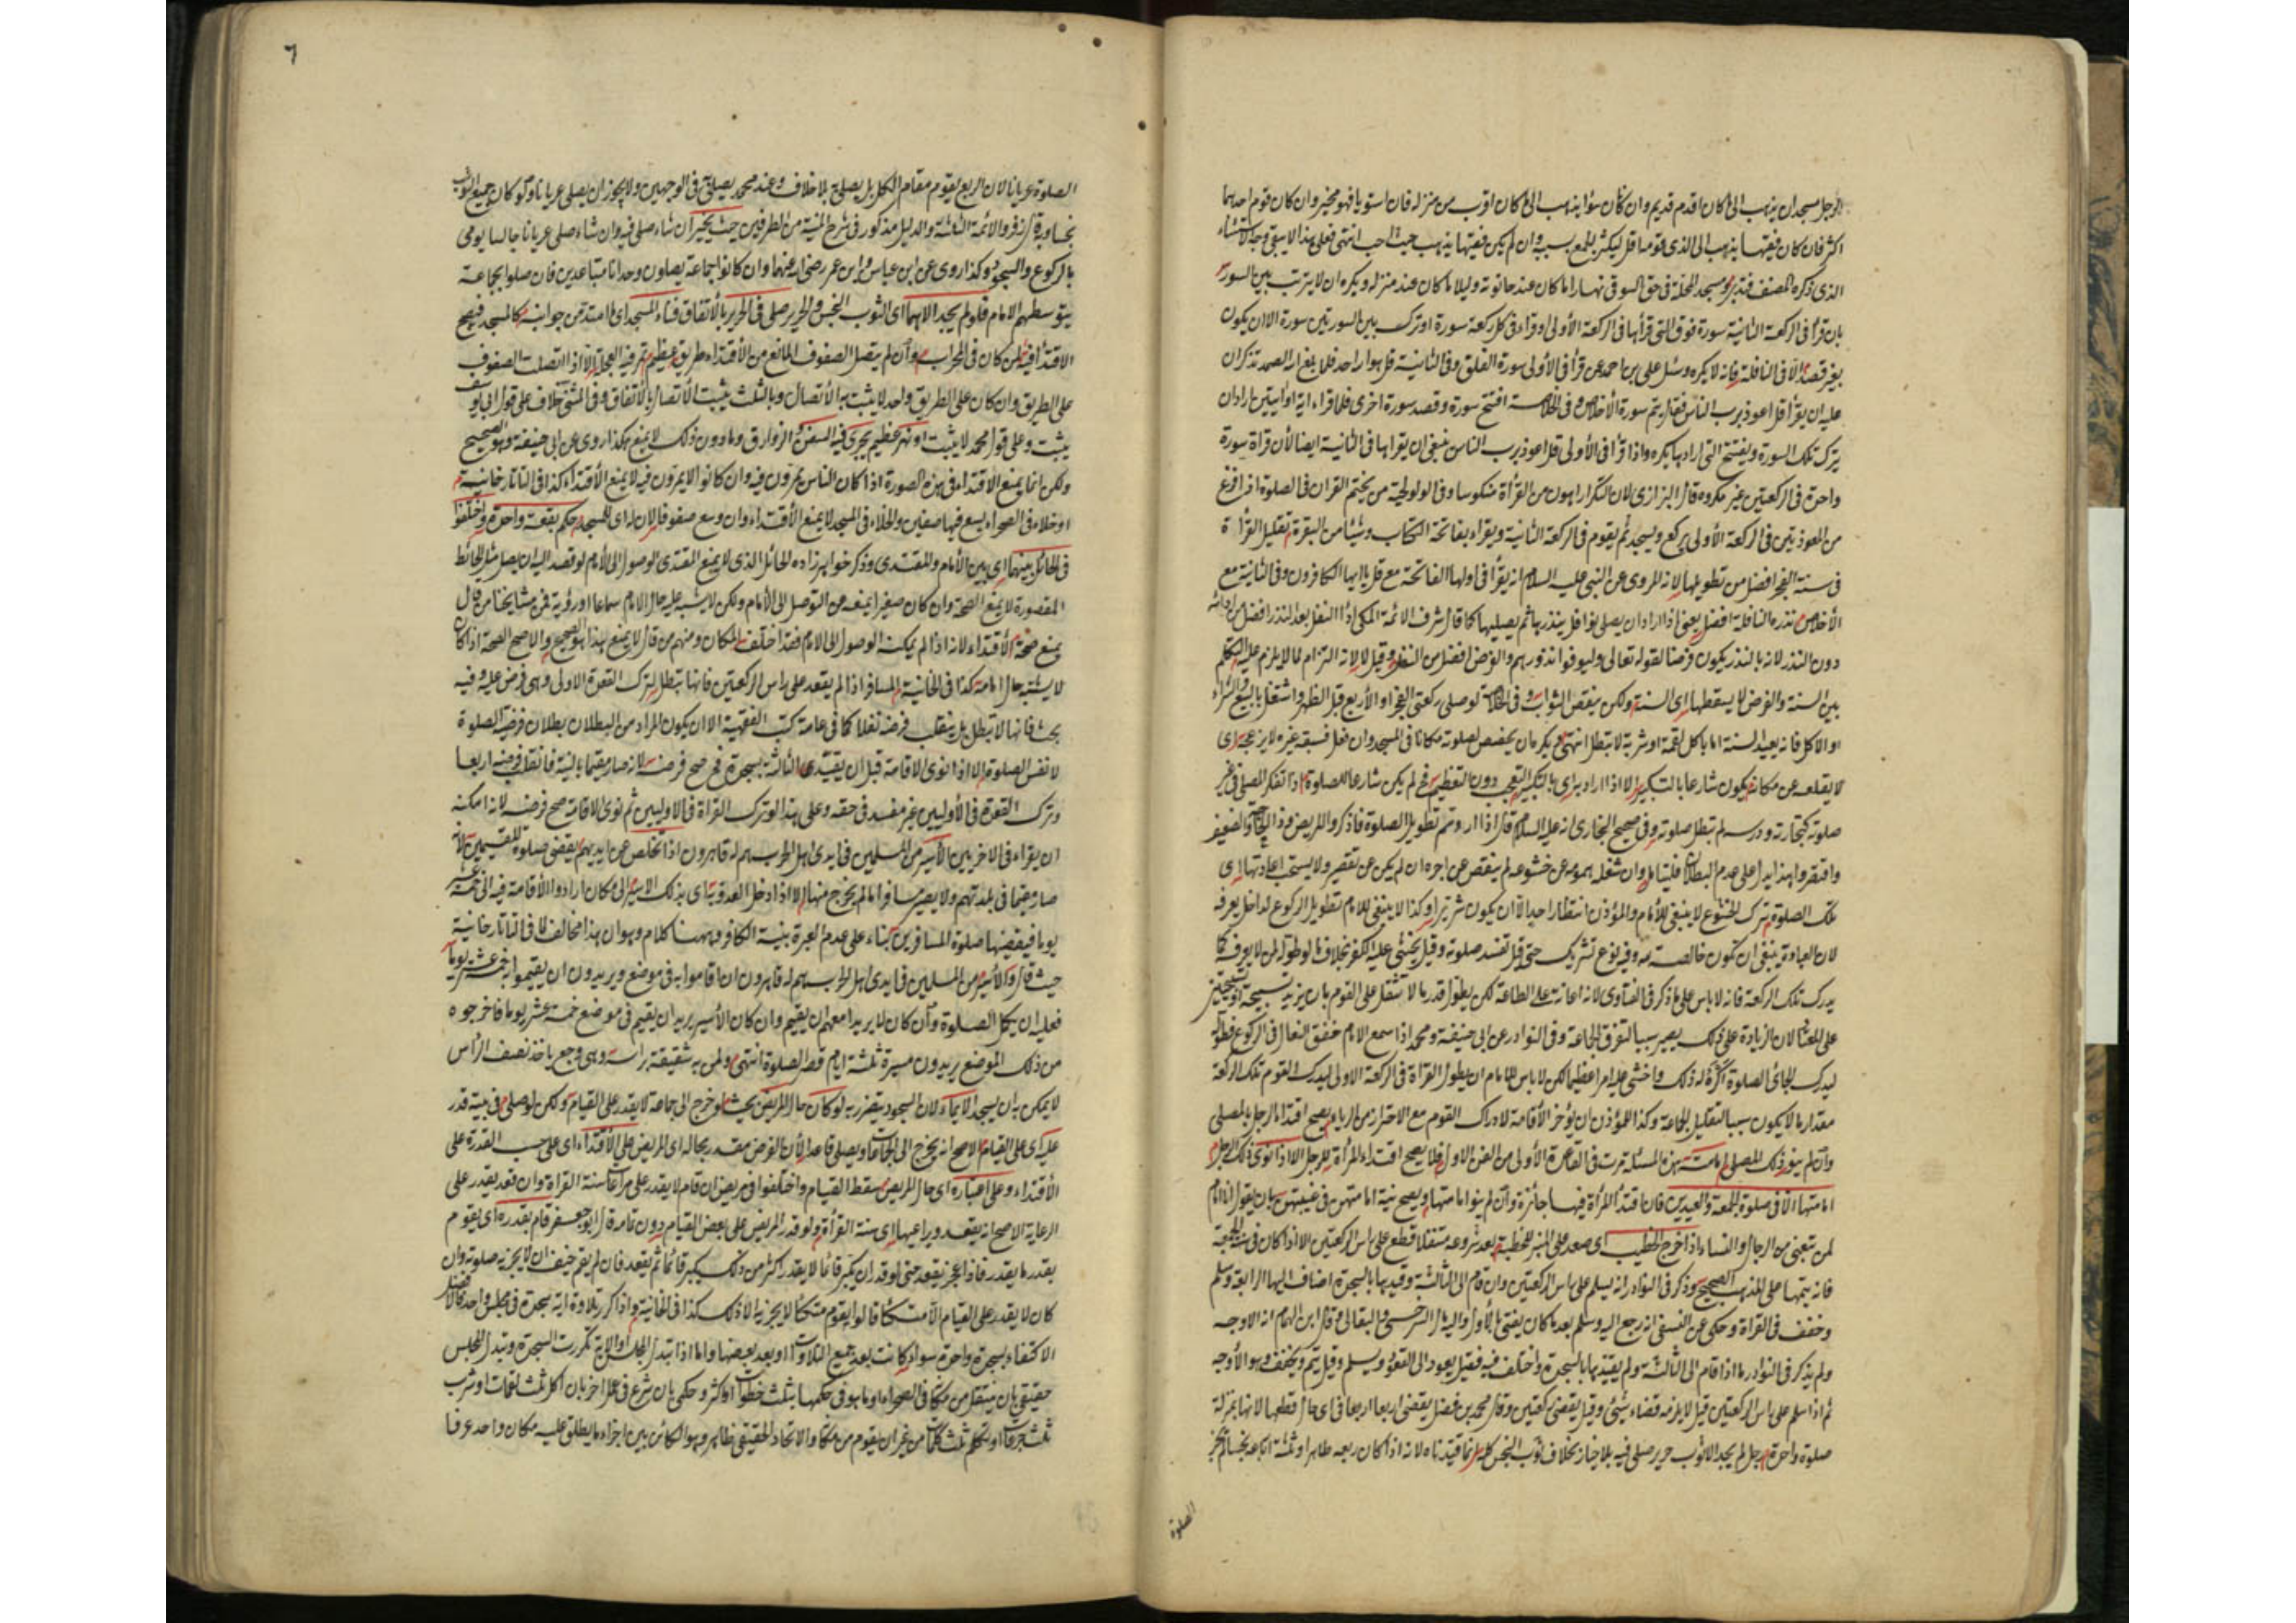 الرجل مسجدان يذهب الى ما كان اقدم قديم وان كان سواء يذهب الى ما كان اقرب من منزله فان استويا فهو مخير وان كان قوم احدهما
اكثر فان كان فقيها يذهب الى الذى قومه اقل ليكثر الجمع بسببه وان لم يكن فقيها يذهب حيث احب انتهى فعلى هذا لا يبقى وجه الاستثناء
الذى ذكره المصنف فتدبر ومسجد المحلة فى حق السوقى نهارا ما كان عند حانوته وليلا ما كان عند منزله ويكره ان لا يرتب بين السور
بان قرأ فى الركعة الثانية سورة فوق التى قرأها فى الركعة الأولى او قراء فى كل ركعة سورة او ترك بين السورتين سورة الا ان يكون
بغير قصد الا فى النافلة فانه لا يكره وسئل على بن احمد عن قرأ فى الأولى سورة الفلق وفى الثانية قل هو الله احد فلما بلغ الله الصمد تذكر ان
عليه ان يقرأ قل اعوذ برب الناس فقال يتم سورة الأخلاص وفى الخلاصة افتتح سورة وقصد سورة اخرى فلما قراء اية او ايتين اراد ان
يترك تلك السورة ويفتتح التى ارادها يكره واذا قرأ فى الأولى قل اعوذ برب الناس ينبغى ان يقراها فى الثانية ايضا لأن قراة سورة
واحدة فى الركعتين غير مكروه قال البزازى لان التكرار اهون من القرأة منكوسا وفى الولوالجية من يختم القران فى الصلوة اذا فرغ
من المعوذتين فى الركعة الأولى يركع ويسجد ثم يقوم فى الركعة الثانية ويقراء بفاتحة الكتاب وشيئا من البقرة تقليل القرأة
فى سنة الفجر افضل من تطويلها لانه المروى عن النبى عليه السلام انه يقرأ فى اولها الفاتحة مع قل يا ايها الكافرون وفى الثانية مع
الأخلاص نذره النافلة افضل يعنى اذا اراد ان يصلى نوافل ينذر بها ثم يصليها كما قال شرف الائمة المكى اداء النفل بعد النذر افضل من ادائه
دون النذر لانه بالنذر يكون فرضا لقوله تعالى وليوفوا نذورهم والفرض افضل من النفل وقيل لا لانه التزام لما لا يلزم عليه التكلم
بين السنة والفرض لا يسقطها اى السنة ولكن ينقص الثواب وفى الخلاصة لو صلى ركعتى الفجر او الأربع قبل الظهر واشتغل بالبيع والشراء
او الاكل فانه يعيد السنة اما باكل لقمة او شربة لا تبطل انتهى يكره ان يخصص لصلوته مكانا فى المسجد وان فعل فسبقه غيره لا يزعجه اى
لا يقلعه عن مكانه يكون شارعا بالتكبير الا اذا اراد به اى بالتكبير التعجب دون التعظيم فح لم يكن شارعا للصلوة اذا تفكر المصلى فى غير
صلوته كتجارته ودرسه لم تبطل صلوته وفى صحيح البخارى انه عليه السلام قال اذا اردتم تطويل الصلوة فاذكروا المريض وذا الحاجة والضعيف
واقتقروا بهذا يدل على عدم البطلان فليتامل وان شغله همومه عن خشوعه لم ينقص عن اجره ان لم يكن عن تقصير ولا يستحب اعادتها اى
تلك الصلوة لترك الخشوع لا ينبغى للأمام والمؤذن انتظار احد الا ان يكون شريرا وكذا لا ينبغى للامام تطويل الركوع لداخل يعرفه
لان العبادة ينبغى ان تكون خالصة لله وفيه نوع تشريك حتى قيل تفسد صلوته وقيل يخشى عليه الكفر بخلاف ما لو طوله لمن لا يعرفه كما
يدرك تلك الركعة فانه لا باس على ما ذكر فى الفتاوى لانه اعانة على الطاعة لكن يطول قدر ما لا تثقل على القوم بان يزيد تسبيحة او تسبيحتين
على المعتاد لان الزيادة على ذلك يصير سببا لتفرق الجماعة وفى النوادر عن ابى حنيفة ومحمد اذا سمع الامام خفق النعال فى الركوع فطوله
ليدرك الجائى الصلوة اكره له ذلك واخشى عليه امرا عظيما لكن لا باس للامام ان يطول القراة فى الركعة الاولى ليدرك القوم تلك الركعة
مقدار ما لا يكون سببا لتقليل الجماعة وكذا المؤذن ان يؤخر الأقامة لادراك القوم مع الاحتراز من الرياء ويصح اقتداء الرجل بالمصلى
وان لم ينو ذلك المصلى امامته هذه المسئلة مرت فى القاعدة الأولى من الفن الاول فلا يصح اقتداء المرأة للرجل الا اذا نوى ذلك الرجل
امامتها الا فى صلوة الجمعة والعيدين فان اقتداء المرأة فيها جائزة وان لم ينو امامتها ويصح نية امامتهن فى غيبتهن بان يقول انا امام
لمن تبعنى من الرجال والنساء اذا خرج الخطيب اى صعد على المنبر للخطبة بعد شروعه متنفلا قطع على راس الركعتين الا اذا كان فى سنة الجمعة
فانه يتمها على المذهب الصحيح وذكر فى النوادر انه يسلم على راس الركعتين وان قام الى الثالثة وقيدها بالسجدة اضاف اليها الرابعة وسلم
وخفف فى القراة وحكى عن النسفى انه رجع اليه وسلم بعد ما كان يفتى بالأول واليه مال السرخسى والبقالى وقال ابن الهمام انه الاوجه
ولم يذكر فى النوادر ما اذا قام الى الثالثة ولم يقيدها بالسجدة واختلف فيه فقيل يعود الى القعود ويسلم وقيل يتم ويخفف وهو الأوجه
ثم اذا سلم على راس الركعتين قيل لا يلزمه قضاء شيئ وقيل يقضى ركعتين وقال محمد بن فضل يقضى اربعا اربعا فى اى حال قطعها لانها بمنزلة
صلوة واحدة رجل لم يجد الا ثوب حرير صلى فيه بلا خيار بخلاف ثوب النجس كله انما قيدناه لانه اذا كان ربعه طاهرا وثلثة ارباعه نجسا لم تجز
الصلوة
٦
الصلوة عريانا لان الربع يقوم مقام الكل بل يصلى به بلا خلاف وعند محمد يصلى به فى الوجهين ولا يجوز ان يصلى عريانا ولو كان جميع الثوب
نجسا وبه قال زفر والائمة الثلثة والدليل مذكور فى شرح المنية من الطرفين حيث يخير ان شاء صلى فيه وان شاء صلى عريانا جالسا يومى
بالركوع والسجود وكذا روى عن ابن عباس وابن عمر رضى الله عنهما وان كانوا جماعة يصلون وحدانا متباعدين فان صلوا بجماعة
يتوسطهم الامام فلو لم يجد الا هما اى الثوب النجس والحرير صلى فى الحرير بالأتفاق فناء المسجد اى ما امتد من جوانبه كالمسجد فيصح
الاقتداء فيه لمن كان فى المحراب وان لم يتصل الصفوف المانع من الأقتداء طريق عظيم تمر فيه العجلة الا اذا اتصلت الصفوف
على الطريق وان كان على الطريق واحد لا يثبت به الأتصال وبالثلث يثبت الأتصال بالأتفاق وفى المثنى خلاف على قول ابى يوسف
يثبت وعلى قول محمد لا يثبت او نهر عظيم يجرى فيه السفن والزوارق وما دون ذلك لا يمنع هكذا روى عن ابى حنيفة وهو الصحيح
ولكن انما يمنع الاقتداء فى هذه الصورة اذا كان الناس يمرون فيه وان كانوا لا يمرون فيه لا يمنع الأقتداء كذا فى التاتارخانية
او خلاء فى الصحراء يسع فيها صفين والخلاء فى المسجد لا يمنع الأقتداء وان وسع صفوفا لان له اى للمسجد حكم بقعة واحدة واختلفوا
فى الحائل بينهما اى بين الأمام والمقتدى وذكر خواهرزاده الحائل الذى لا يمنع المقتدى الوصول الى الأمام لو قصد اليه ان يصل مثل الحائط
المقصورة لا يمنع الصحة وان كان صغيرا يمنعه من التوصل الى الأمام ولكن لا يشبه عليه حال الامام سماعا او رؤية فمن مشايخنا من قال
يمنع صحة الأقتداء لانه اذا لم يمكنه الوصول الى الامام فقد اختلف المكان ومنهم من قال لا يمنع هذا هو الصحيح والاصح الصحة اذا كان
لا يشتبه حال امامه كذا فى الخانية المسافر اذا لم يقعد على راس الركعتين فانها تبطل لترك القعدة الاولى وهى فرض عليه وفيه
بحث فانها لا تبطل بل ينقلب فرضه نفلا كما فى عامة كتب الفقهية الا ان يكون المراد من البطلان بطلان فرضية الصلوة
لا نفس الصلوة الا اذا نوى الاقامة قبل ان يقيد الثالثة بسجدة فح صح فرضه لانه صار مقيما بالنية فانقلب فرضه اربعا
وترك القعدة فى الأوليين غير مفسد فى حقه وعلى هذا لو ترك القراة فى الاوليين ثم نوى الاقامة صح فرضه لانه امكنه
ان يقراء فى الاخريين الأسير من المسلمين فى ايدى اهل الحرب هم له قاهرون اذا تخلص عن ايديهم يقضى صلوة المقيمين لانه
صار مقيما فى بلدتهم ولا يصير مسافرا ما لم يخرج منها الا اذا دخل العدو به اى بذلك الاسير الى مكان ارادوا الأقامة فيه الى خمسة عشر
يوما فيقضيها صلوة المسافرين بناء على عدم العبرة بنية الكافر وههنا كلام وهو ان هذا مخالف لما فى التاتارخانية
حيث قال والأسير من المسلمين فى ايدى اهل الحرب هم له قاهرون ان اقاموا به فى موضع ويريدون ان يقيموا خمسة عشر يوما
فعليه ان يكمل الصلوة وان كان لا يريد معهم ان يقيم وان كان الأسير يريد ان يقيم فى موضع خمسة عشر يوما فاخرجوه
من ذلك الموضع يريدون مسيرة ثلثة ايام قصر الصلوة انتهى ولمن به شقيقة راسه وهى وجع ياخذ نصف الرأس
لا يمكن به ان يسجد الايماء لان السجود يتضرر به لو كان حال المريض بحيث لو خرج الى جماعة لا يقدر على القيام ولكن لو صلى فى بيته قدر
عليه اى على القيام الاصح انه يخرج الى الجماعات ويصلى قاعدا لأن الفرض مقدر بحاله اى المريض على الأقتداء اى على حسب القدرة على
الأقتداء وعلى اعتباره اى حال المريض سقط القيام واختلفوا فى مريض ان قام لا يقدر على مراعاة سنة القراة وان قعد يقدر على
الرعاية الاصح انه يقعد ويراعيها اى سنة القرأة ولو قدر المريض على بعض القيام دون تمامه قال ابو جعفر قام بقدره اى يقوم
بقدر ما يقدر فاذا عجز يقعد حتى لو قدر ان يكبر قائما لا يقدر اكثر من ذلك يكبر قائما ثم يقعد فان لم يقم خيف ان لا يجزيه صلوته وان
كان لا يقدر على القيام الا متكئا قالوا يقوم متكئا لا يجزيه الا ذلك كذا فى الخانية واذا كرر تلاوة اية سجدة فى مجلس واحد فالافضل
الاكتفاء بسجدة واحدة سواء كانت بعد جميع التلاوات او بعد بعضها واما اذا تبدل المجلس او الاية تكررت السجدة وتبدل المجلس
حقيقى بان ينتقل من مكان فى الصحراء او ما هو فى حكمها بثلث خطوات او اكثر وحكمى بان شرع فى عمل اخر بان اكل ثلث لقمات او شرب
ثلث جرعات او تكلم ثلث كلمات من غير ان يقوم من مكانه والاتحاد الحقيقى ظاهر وهو الكائن بين اجزاء ما يطلق عليه مكان واحد عرفا